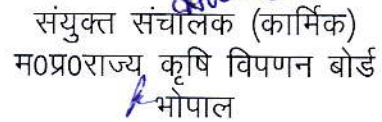 संयुक्त संचालक (कार्मिक)
म०प्र०राज्य कृषि विपणन बोर्ड
भोपाल